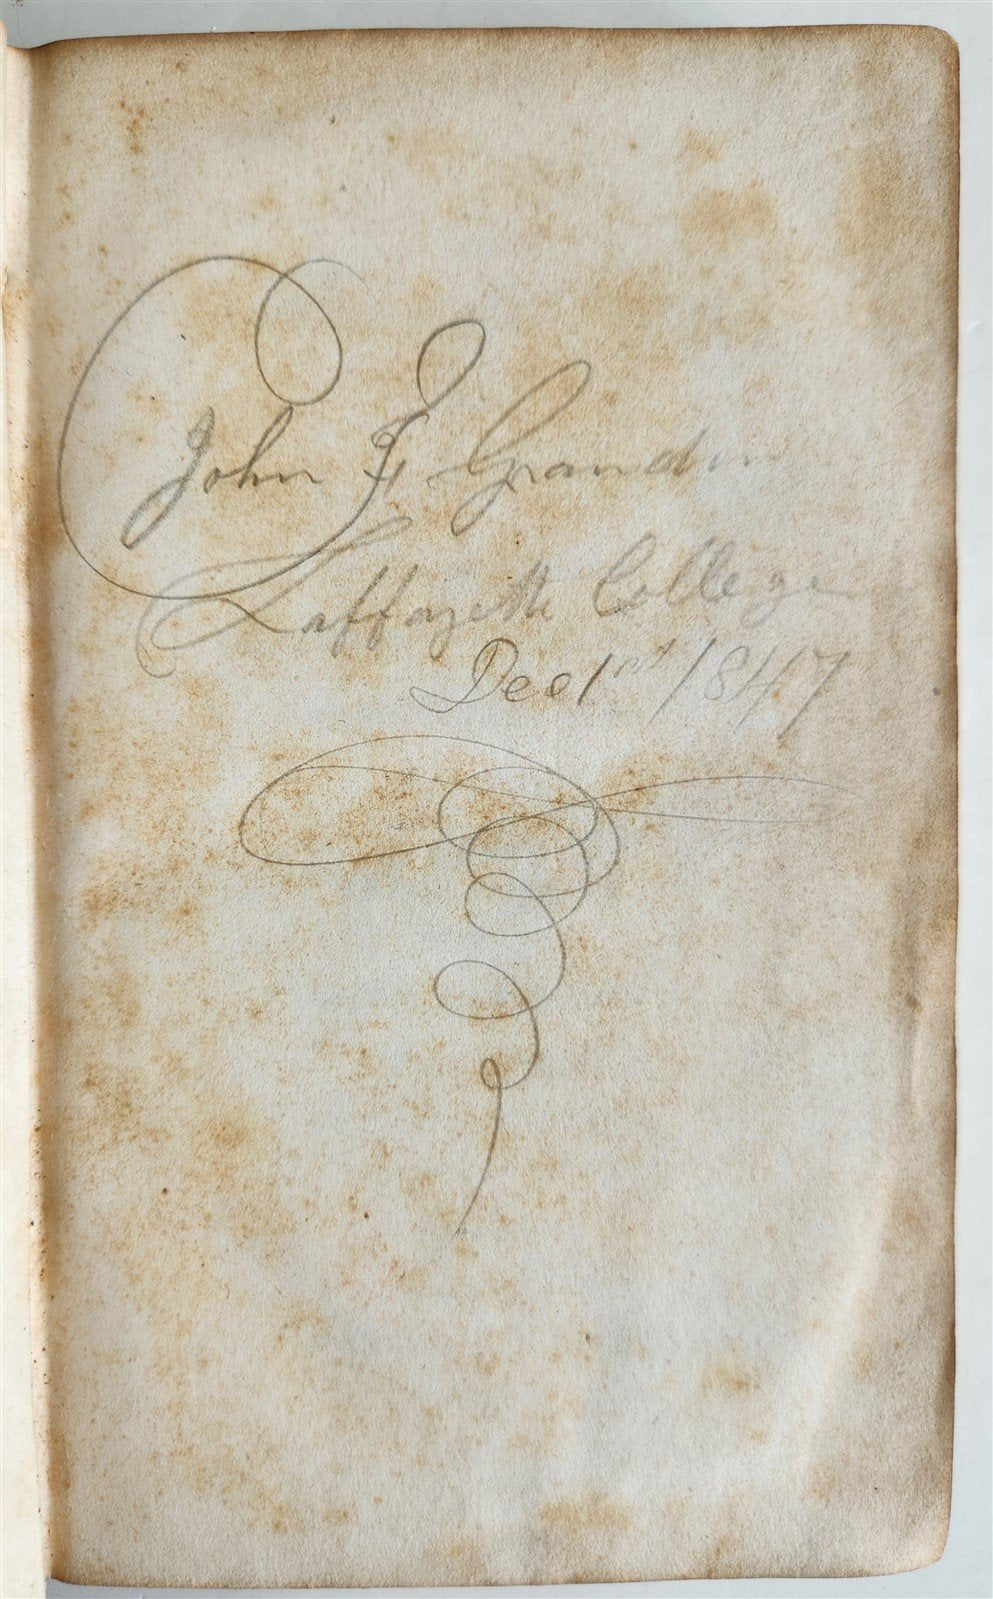 John F Grandin
Laffayette College
Dec 1st 1847